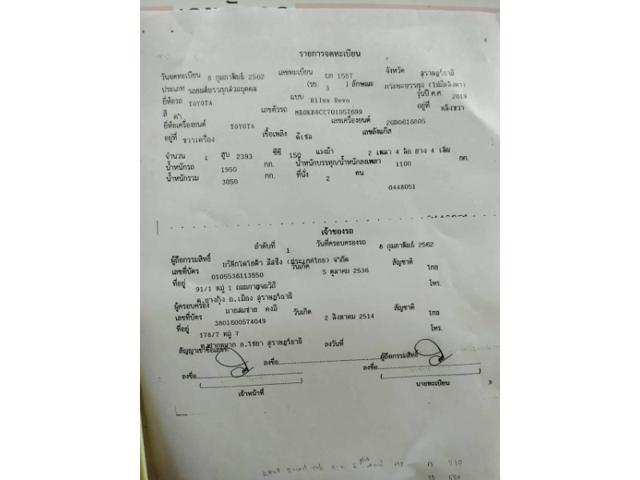 รายการจดทะเบียน
วันจดทะเบียน 8 กุมภาพันธ์ 2562 เลขทะเบียน ผก 1557 จังหวัด สุราษฎร์ธานี
ประเภท รถยนต์บรรทุกส่วนบุคคล (รย. 3 ) ลักษณะ กระบะบรรทุก (ไม่มีหลังคา)
ยี่ห้อรถ TOYOTA แบบ Hilux Revo รุ่นปี ค.ศ. 2019
สี ดำ เลขตัวรถ อยู่ที่
ยี่ห้อเครื่องยนต์ TOYOTA เลขเครื่องยนต์
อยู่ที่ ขวาเครื่อง เชื้อเพลิง ดีเซล เลขถังแก๊ส
จำนวน สูบ 2393 ซีซี 150 แรงม้า 2 เพลา 4 ล้อ ยาง 4 เส้น
น้ำหนักรถ 1950 กก. น้ำหนักบรรทุก/น้ำหนักลงเพลา 1100 กก.
น้ำหนักรวม 3050 กก. ที่นั่ง 2 คน
0448051
เจ้าของรถ
ลำดับที่ 1 วันที่ครอบครองรถ 8 กุมภาพันธ์ 2562
ผู้ถือกรรมสิทธิ์ บริษัทโตโยต้า ลีสซิ่ง (ประเทศไทย) จำกัด
เลขที่บัตร 0105536113550 วันเกิด 5 ตุลาคม 2536 สัญชาติ ไทย
ที่อยู่ 91/1 หมู่ 1 ถนนกาญจนวิถี โทร.
ต.บางกุ้ง อ.เมือง สุราษฎร์ธานี
ผู้ครอบครอง นายสมชาย
เลขที่บัตร 3801600574049 วันเกิด 2 สิงหาคม 2514 สัญชาติ ไทย
ที่อยู่ 178/7 หมู่ 7 โทร.
อ.ไชยา สุราษฎร์ธานี
สัญญาเช่าซื้อเลขที่ ลงวันที่
ลงชื่อ ผู้ถือกรรมสิทธิ์
ลงชื่อ ลงชื่อ
เจ้าหน้าที่ นายทะเบียน